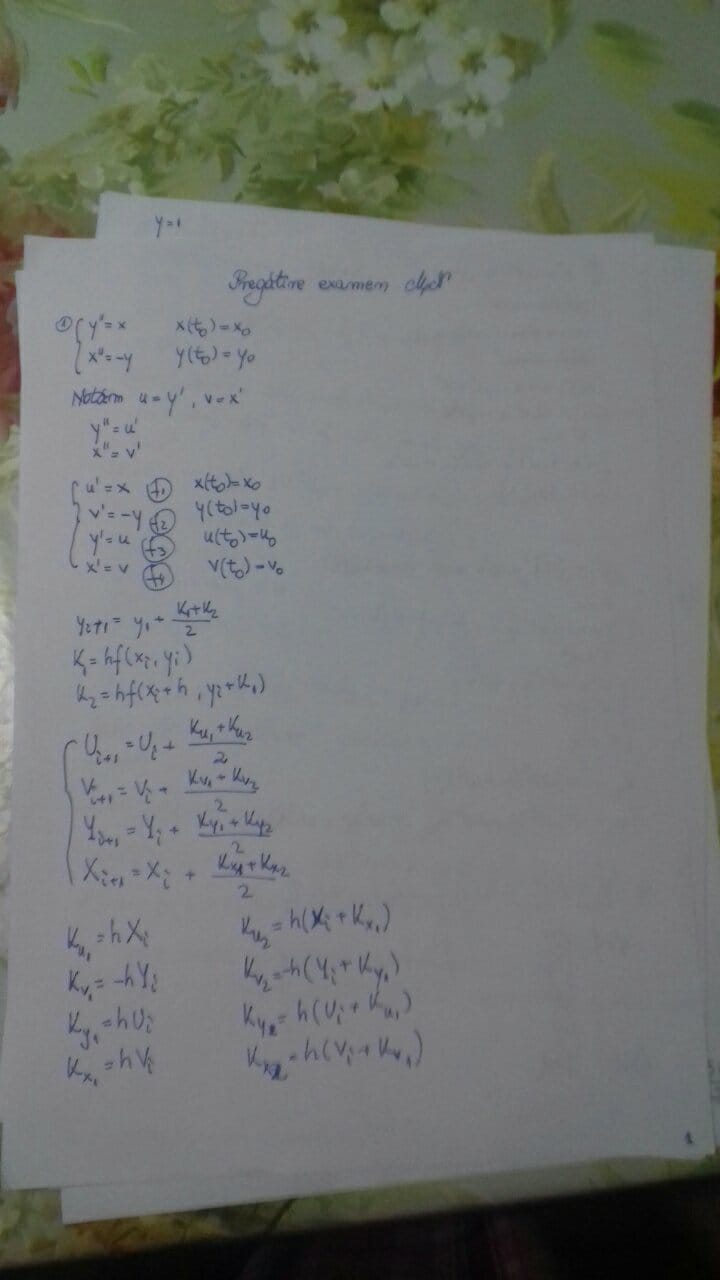 y=1
Pregătire examen
① { y''=x x(t₀)=x₀
x''=-y y(t₀)=y₀
Notăm u=y', v=x'
y''=u'
x''=v'
{ u'=x (f₁) x(t₀)=x₀
v'=-y (f₂) y(t₀)=y₀
y'=u (f₃) u(t₀)=u₀
x'=v (f₄) v(t₀)=v₀
yᵢ₊₁ = yᵢ + (K₁+K₂)/2
K₁=hf(xᵢ, yᵢ)
K₂=hf(xᵢ+h, yᵢ+K₁)
{ Uᵢ₊₁ = Uᵢ + (K_u₁+K_u₂)/2
Vᵢ₊₁ = Vᵢ + (K_v₁+K_v₂)/2
Yᵢ₊₁ = Yᵢ + (K_y₁+K_y₂)/2
Xᵢ₊₁ = Xᵢ + (K_x₁+K_x₂)/2
K_u₁=hXᵢ K_u₂=h(Xᵢ+K_x₁)
K_v₁=-hYᵢ K_v₂=-h(Yᵢ+K_y₁)
K_y₁=hUᵢ K_y₂=h(Uᵢ+K_u₁)
K_x₁=hVᵢ K_x₂=h(Vᵢ+K_v₁)
1